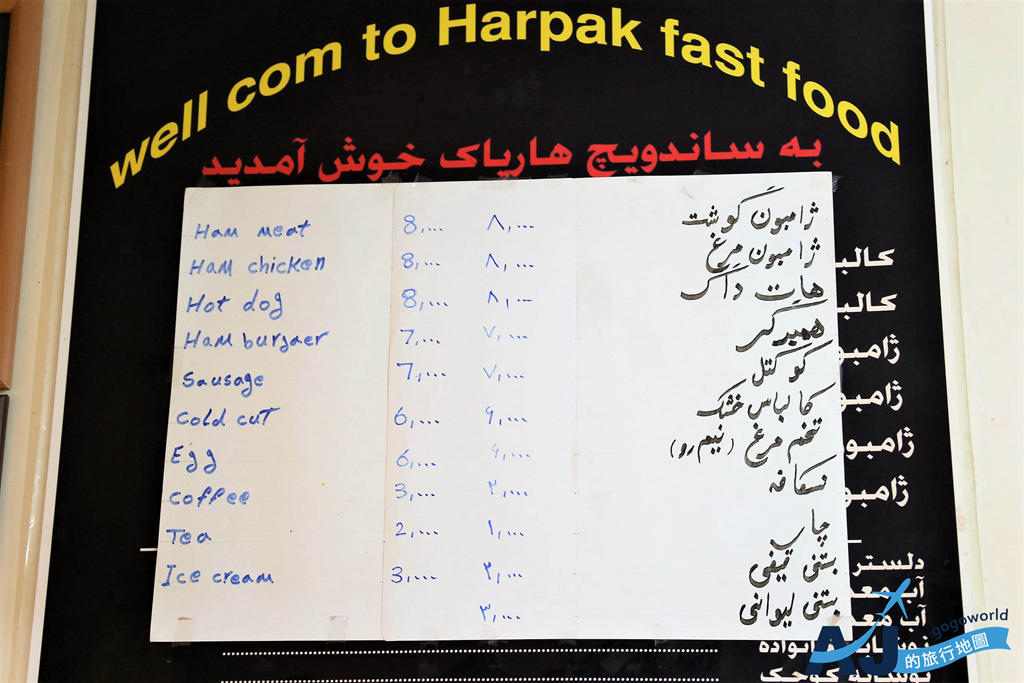 well com to Harpak fast food
به ساندویچ هارپاک خوش آمدید
Ham meat 8,000 ۸,۰۰۰ ژامبون گوشت
Ham chicken 8,000 ۸,۰۰۰ ژامبون مرغ
Hot dog 8,000 ۸,۰۰۰ هات داگ
Ham burgaer 7,000 ۷,۰۰۰ همبرگر
Sausage 7,000 ۷,۰۰۰ کوکتل
Cold cut 6,000 ۶,۰۰۰ کالباس خشک
Egg 6,000 ۶,۰۰۰ تخم مرغ (نیم رو)
Coffee 3,000 ۲,۰۰۰ نسکافه
Tea 2,000 ۱,۰۰۰ چای
Ice cream 3,000 ۲,۰۰۰ بستنی قیفی
۳,۰۰۰ بستنی لیوانی
کالب
کالب
ژامبو
ژامبو
ژامبو
ژامبو
دلستر
آب معد
آب معد
نوشابه خانواده
نوشابه کوچک
AJ
gogoworld
的旅行地圖